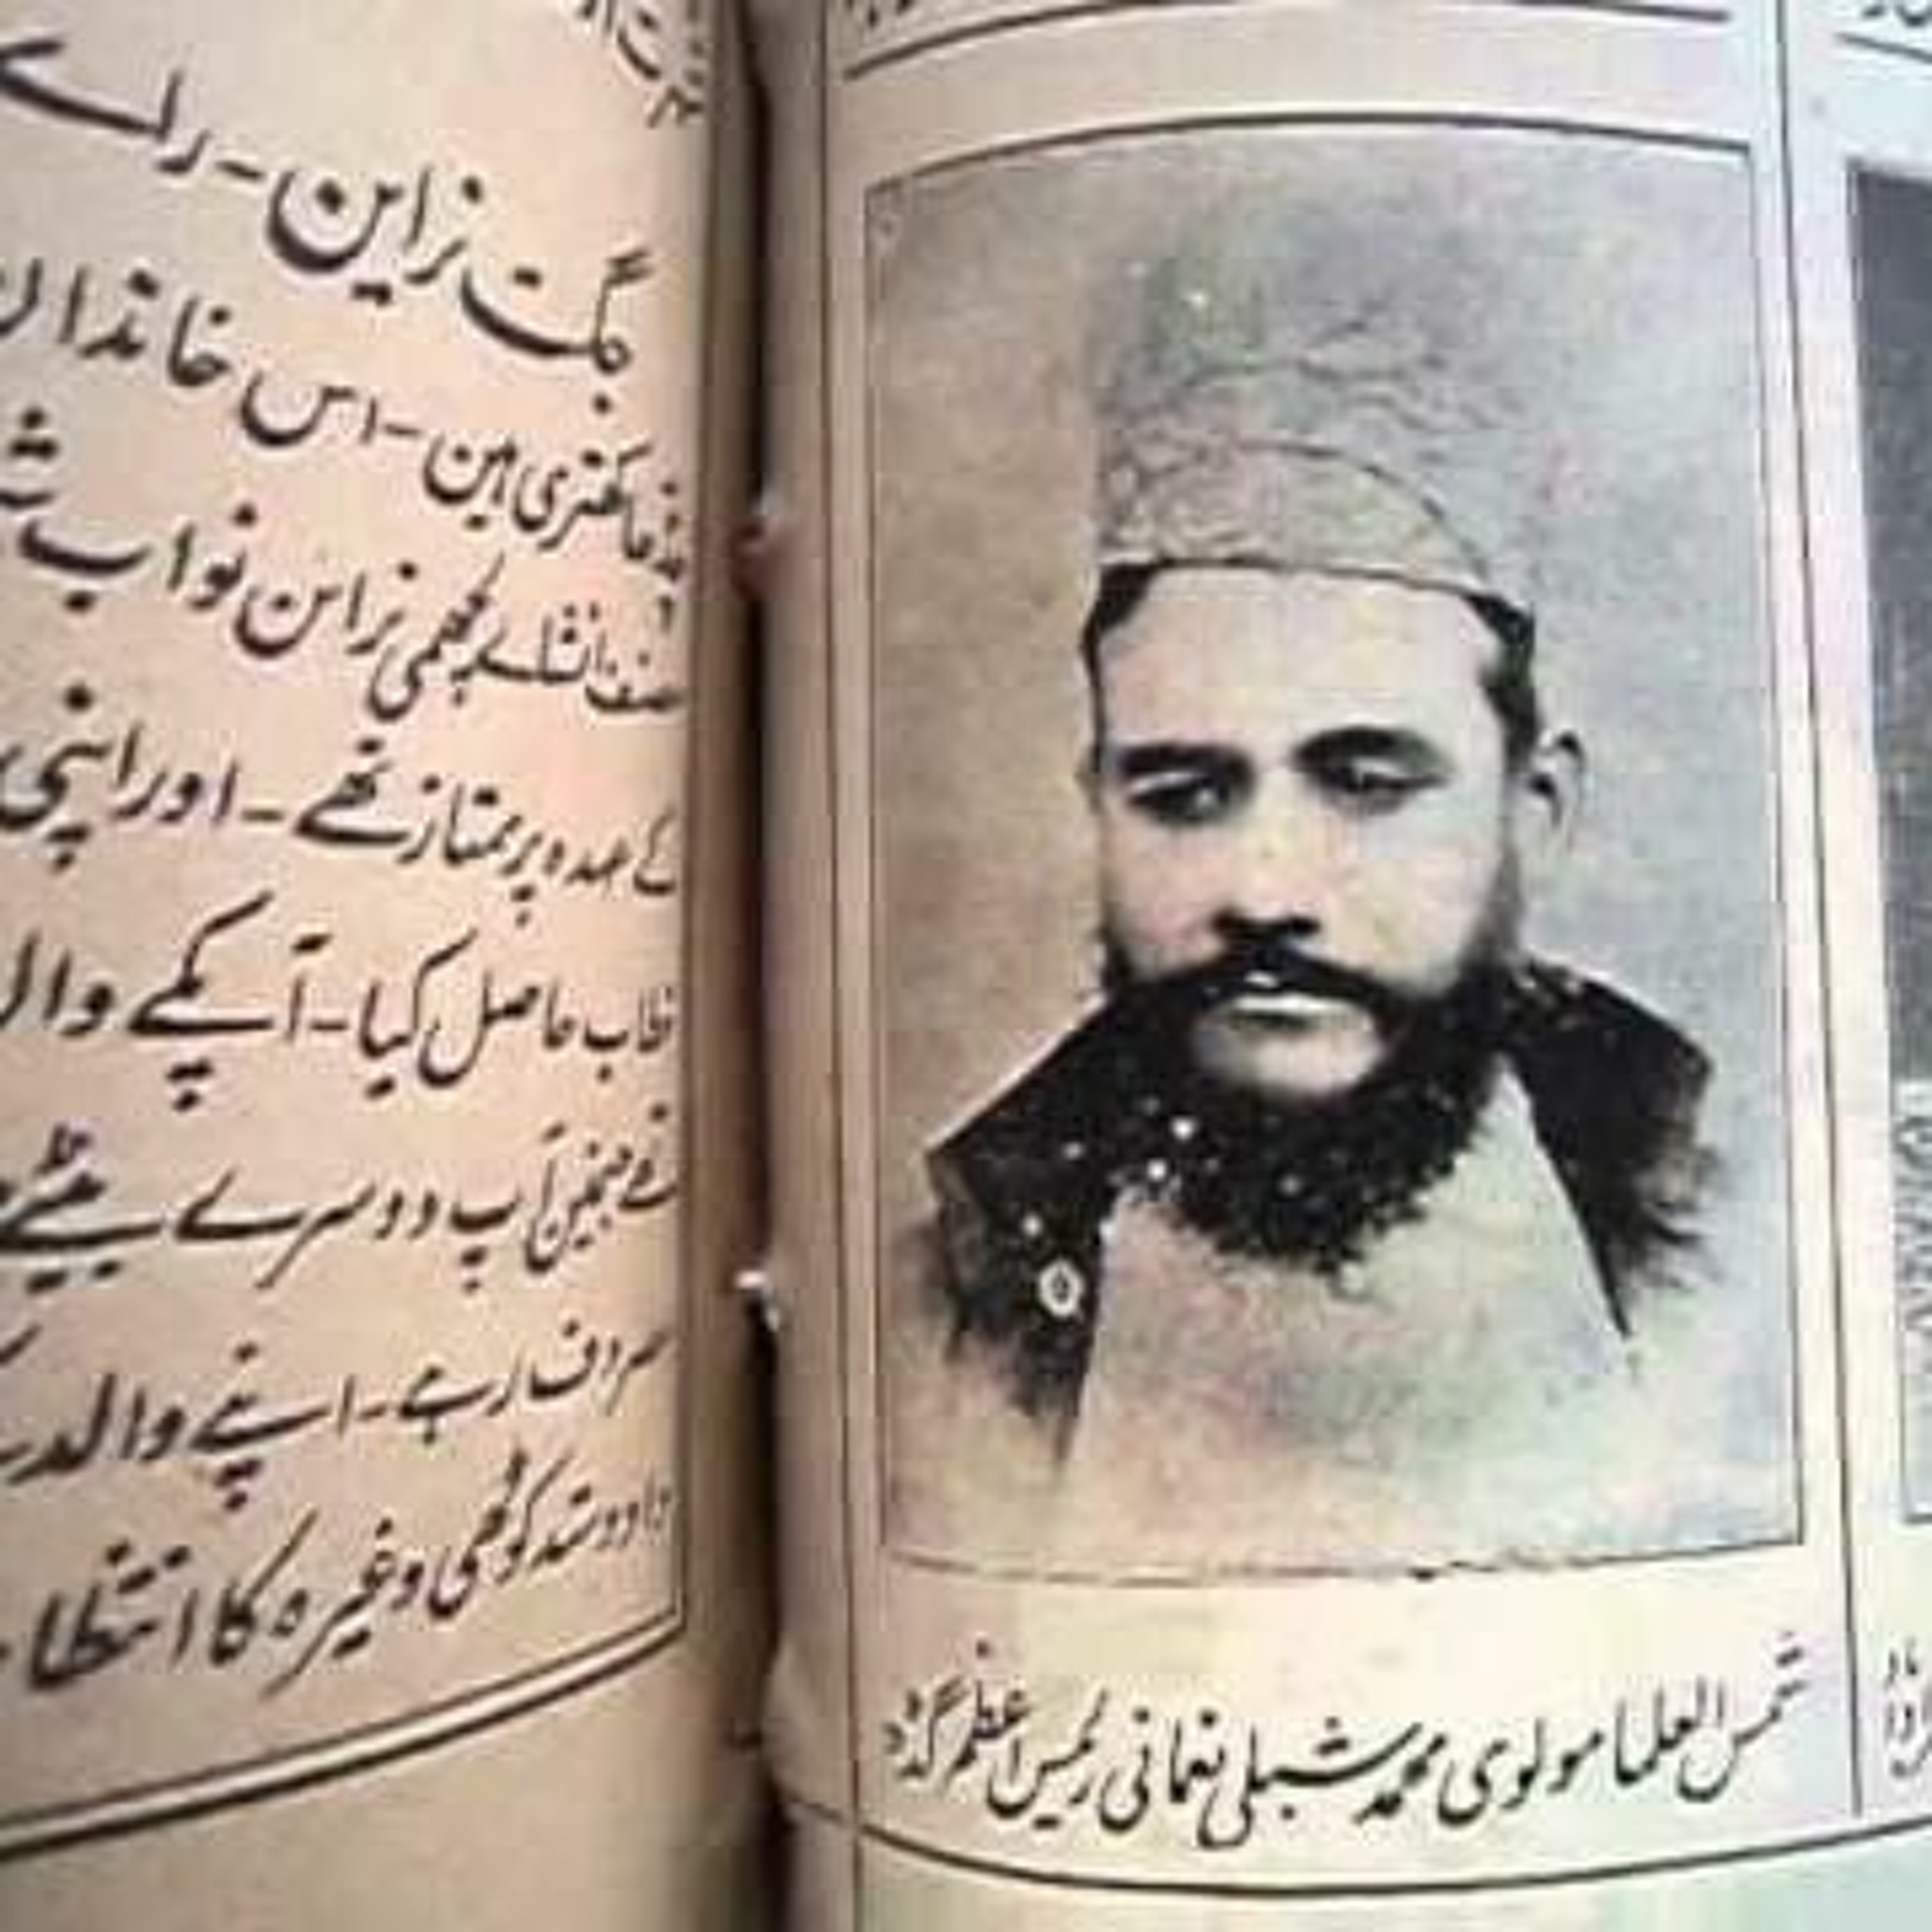 جگت نراین - راے
کھتری ہین - اس خاندان
لچھمی نراین نواب
کے عہدہ پر ممتاز تھے - اور اپنی
خطاب حاصل کیا - آپکے وال
آپ دوسرے بیٹے
رہے - اپنے والد
کوٹھی وغیرہ کا انتظا
شمس العلما مولوی محمد شبلی نعمانی رئیس اعظم گڈہ